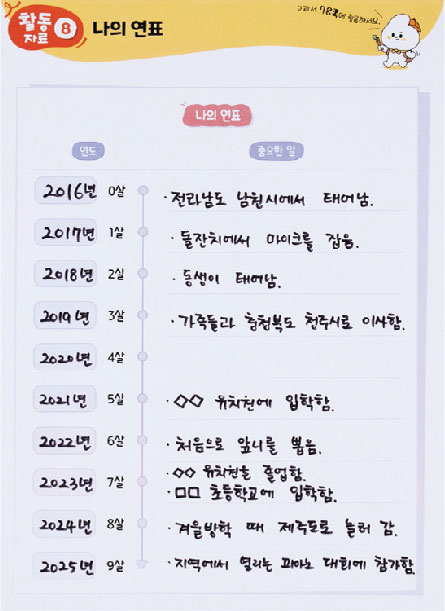 활동 자료 8 나의 연표
교과서 78쪽에 활용하세요.
나의 연표
연도 중요한 일
2016년 0살 · 전라남도 남원시에서 태어남.
2017년 1살 · 돌잔치에서 마이크를 잡음.
2018년 2살 · 동생이 태어남.
2019년 3살 · 가족들과 충청북도 청주시로 이사함.
2020년 4살
2021년 5살 · ◇◇ 유치원에 입학함.
2022년 6살 · 처음으로 앞니를 뽑음.
2023년 7살 · ◇◇ 유치원을 졸업함.
· □□ 초등학교에 입학함.
2024년 8살 · 겨울방학 때 제주도로 놀러 감.
2025년 9살 · 지역에서 열리는 피아노 대회에 참가함.